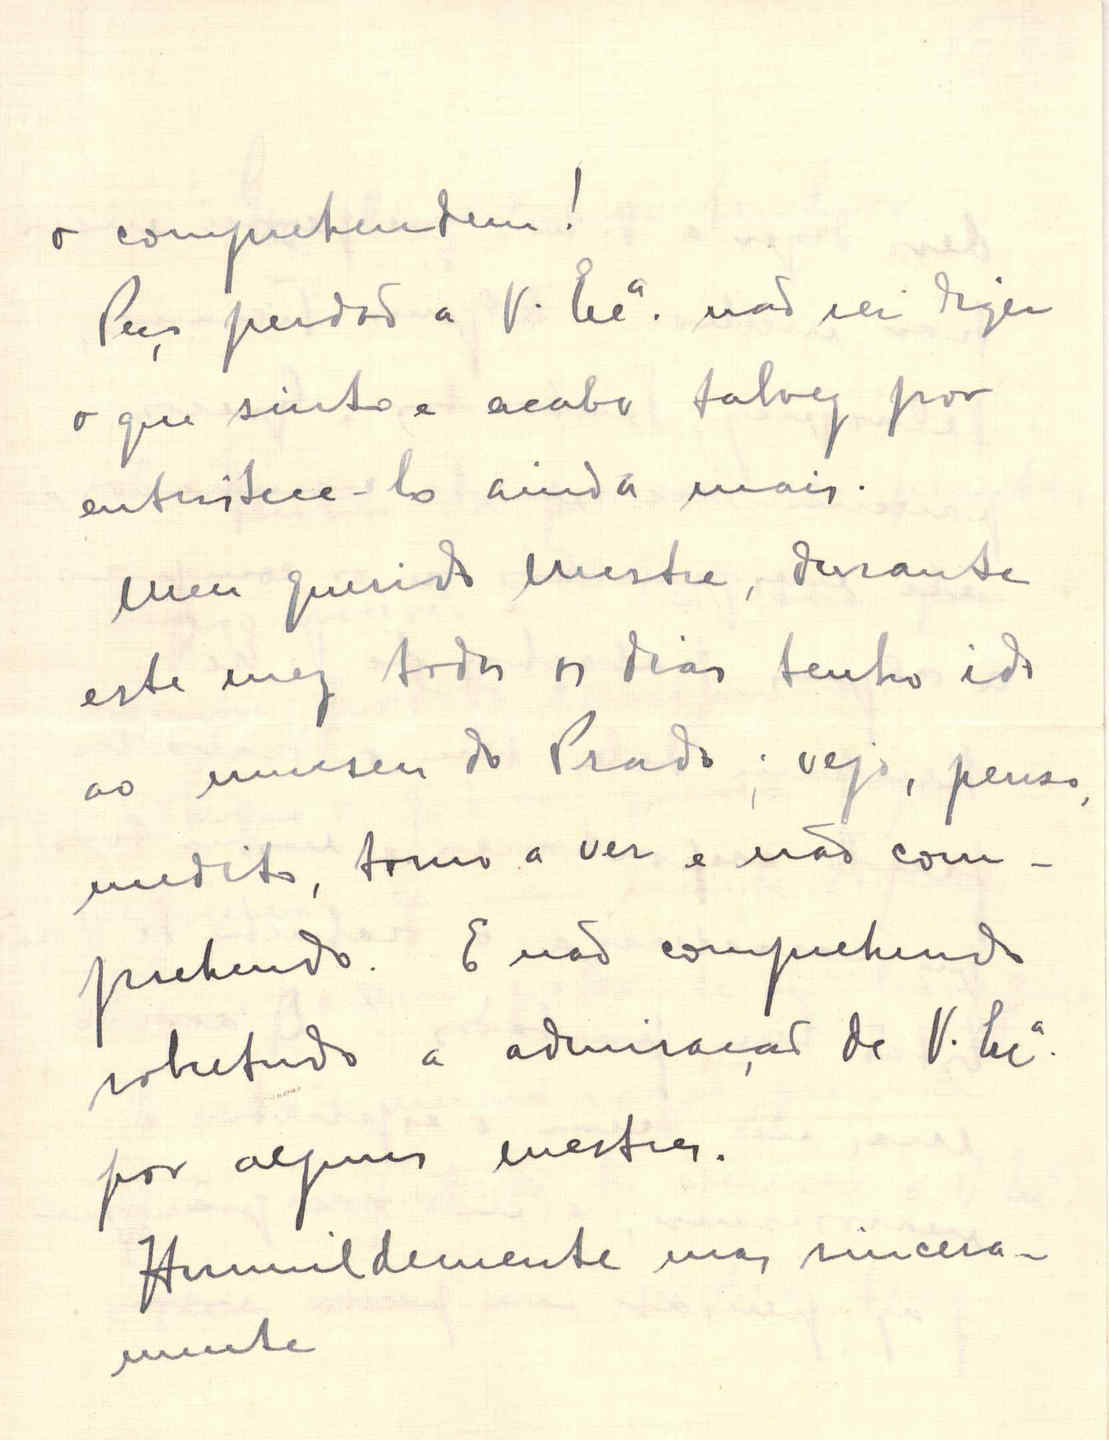 o comprehendem!
Peço perdaõ a V. Excª. naõ sei dizer
o que sinto e acabo talvez por
entristece-lo ainda mais.
Meu querido Mestre, durante
este mez todos os dias tenho ido
ao museu do Prado; vejo, penso,
medito, torno a ver e naõ com-
prehendo. E naõ comprehendo
sobretudo a admiraçaõ de V. Excª.
por alguns mestres.
Humildemente mas sincera-
mente